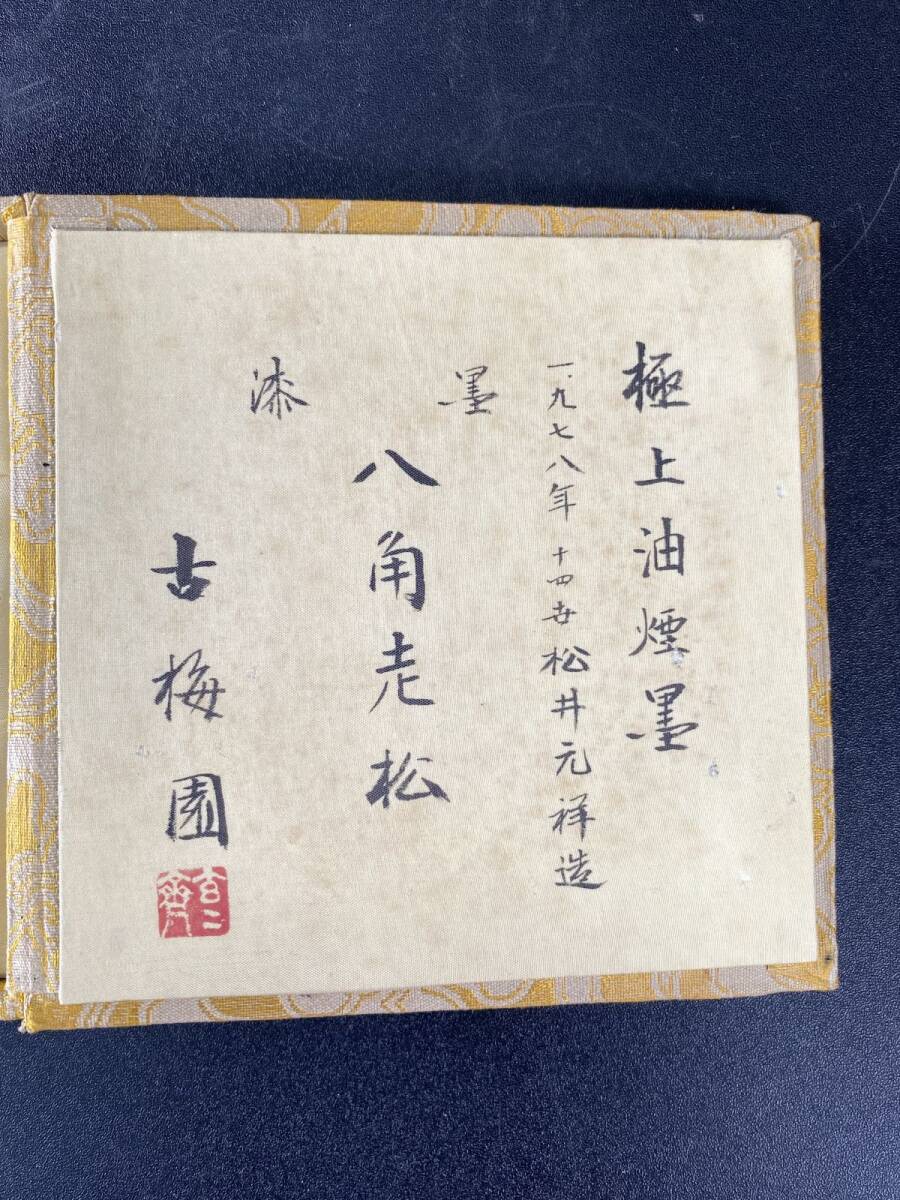 極上油煙墨
一九七八年 十四世松井元祥造
墨
八角老松
漆
古梅園